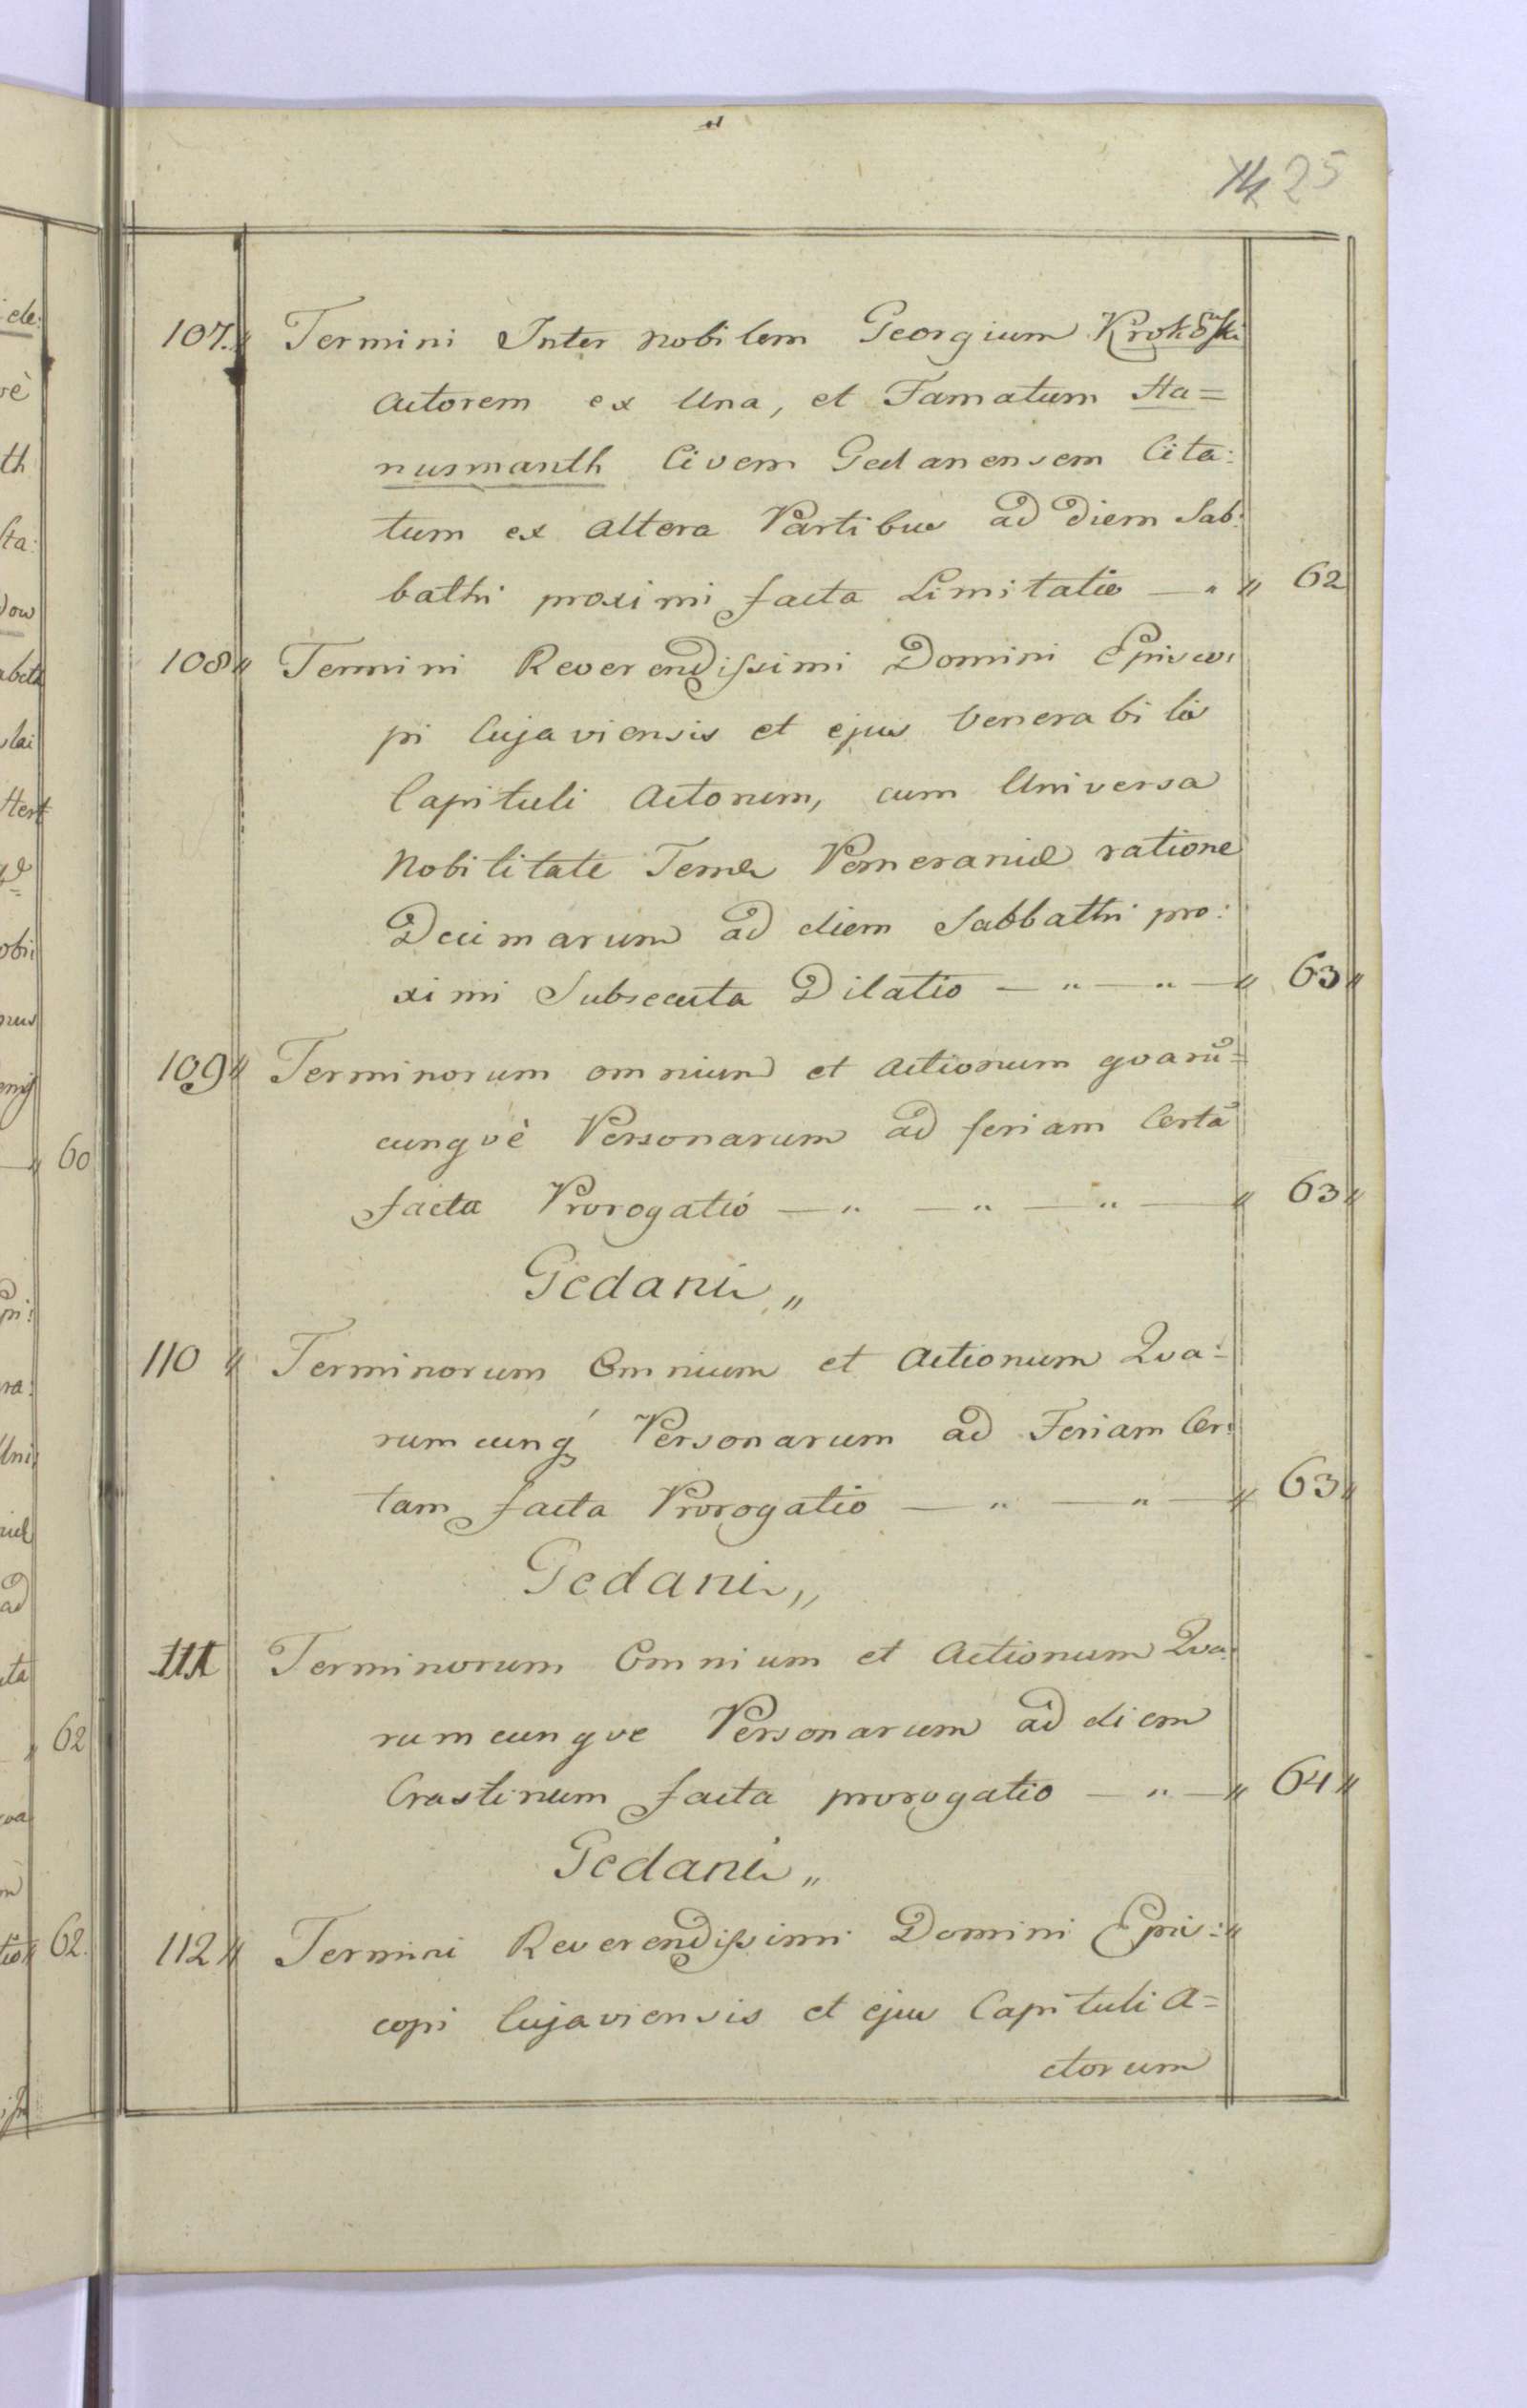 25
107. Termini Inter Nobilem Georgium
Actorem ex Una, et Famatum Ha=
nusmanth Civem Gedanensem Cita:
tum ex altera Partibus ad Diem Sab:
bathi proximi facta Limitatio — " 62
108 Termini Reverendissimi Domini Episco:
pi Cujaviensis et ejus Venerabilis
Capituli Actorum, cum Universa
Nobilitate Terræ Pomeraniæ ratione
Decimarum ad diem Sabbathi pro:
ximi Subsecuta Dilatio — " — " — 63
109 Terminorum omnium et Actionum qvarū=
cunqvè Personarum ad feriam Certā
facta Prorogatio — " — " — " — 63
Gedani "
110 Terminorum Omnium et Actionum Qva:
rumcunq́ Personarum ad Feriam Cer:
tam facta Prorogatio — " — " — 63
Gedani "
111 Terminorum Omnium et Actionum Qva:
rumcunqve Personarum ad diem
Crastinum facta prorogatio — " — 64
Gedani "
112 Termini Reverendissimi Domini Epis:
copi Cujaviensis et ejus Capituli A=
ctorum
60
62
62.